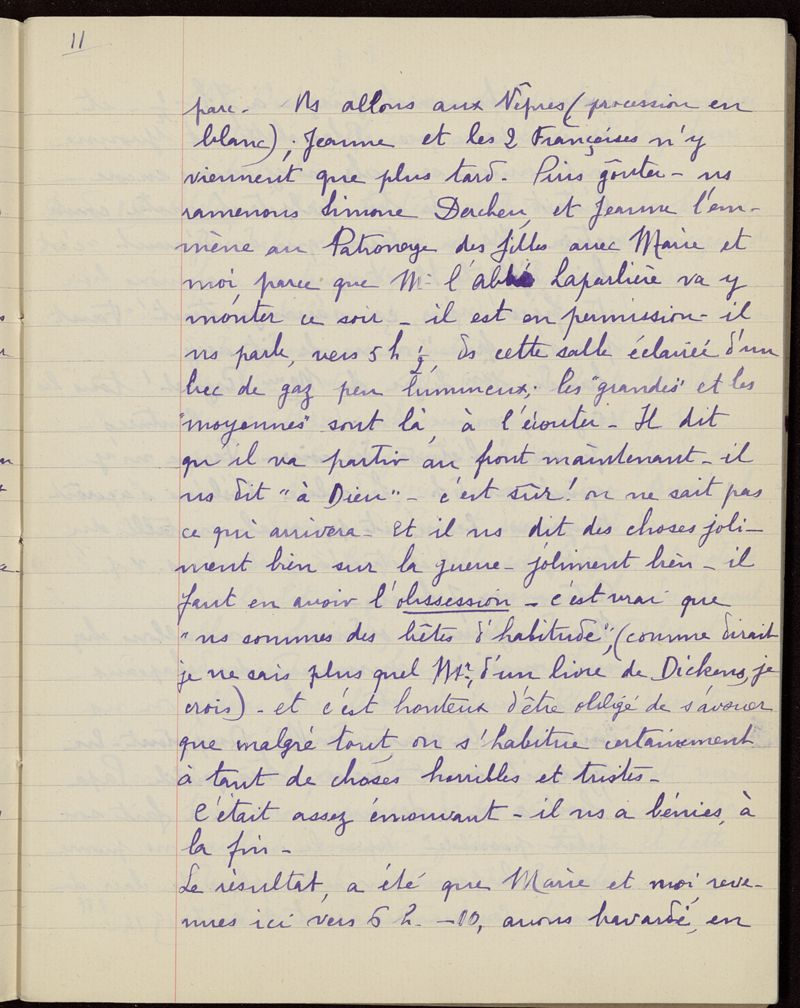 11
parc. Ns allons aux Vêpres (procession en
blanc) ; Jeanne et les 2 Françoises n'y
viennent que plus tard. Puis goûter - ns
ramenons Simone Dercheu, et Jeanne l'em-
mène au Patronage des filles avec Marie et
moi parce que Mr l'abbé Laparlière va y
monter ce soir - il est en permission - il
ns parle, vers 5 h 1/2, ds cette salle éclairée d'un
bec de gaz peu lumineux ; les "grandes" et les
"moyennes" sont là, à l'écouter - Il dit
qu'il va partir au front maintenant - il
ns dit "à Dieu" - c'est sûr ! on ne sait pas
ce qui arrivera - Et il ns dit des choses joli-
ment bien sur la guerre - joliment bien - il
faut en avoir l'obssession - c'est vrai que
"ns sommes des bêtes d'habitude", (comme dirait
je ne sais plus quel Mr, d'un livre de Dickens, je
crois) - et c'est honteux d'être obligé de s'avouer
que malgré tout, on s'habitue certainement
à tant de choses horribles et tristes -
C'était assez émouvant - il ns a bénies, à
la fin -
Le résultat, a été que Marie et moi, reve-
nues ici vers 6 h. - 10, avons bavardé, en